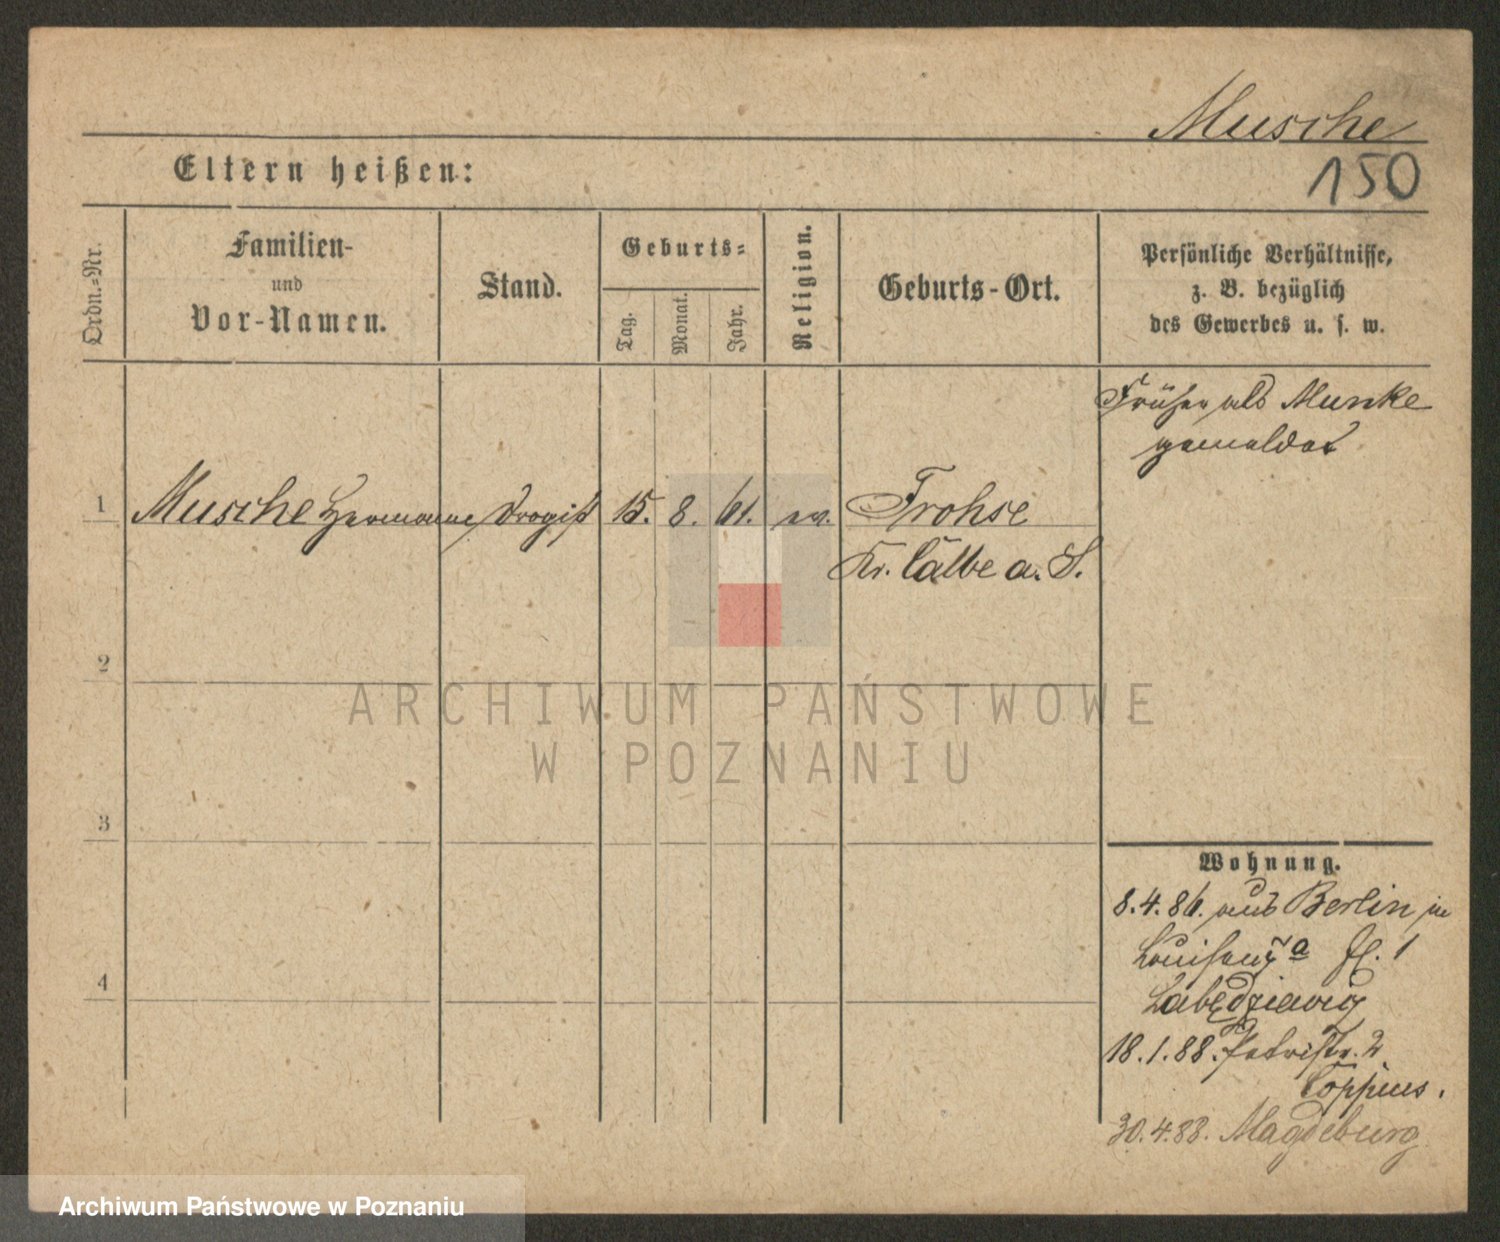 Musche
150
Eltern heißen:
Ordn.-Nr.
Familien-
und
Vor-Namen.
Stand.
Geburts-
Tag.
Monat.
Jahr.
Religion.
Geburts-Ort.
Persönliche Verhältnisse,
z. B. bezüglich
des Gewerbes u. s. w.
Früher als Munke
gemeldet
1 Musche Hermann Drogist 15. 8. 61. ev. Frohse
Kr. Calbe a. S.
2
ARCHIWUM PAŃSTWOWE
W POZNANIU
3
Wohnung.
8.4.86. aus Berlin in
a fl. 1
4
Łabędziewig
18.1.88. Petristr. 2
Coppius.
30.4.88. Magdeburg
Archiwum Państwowe w Poznaniu